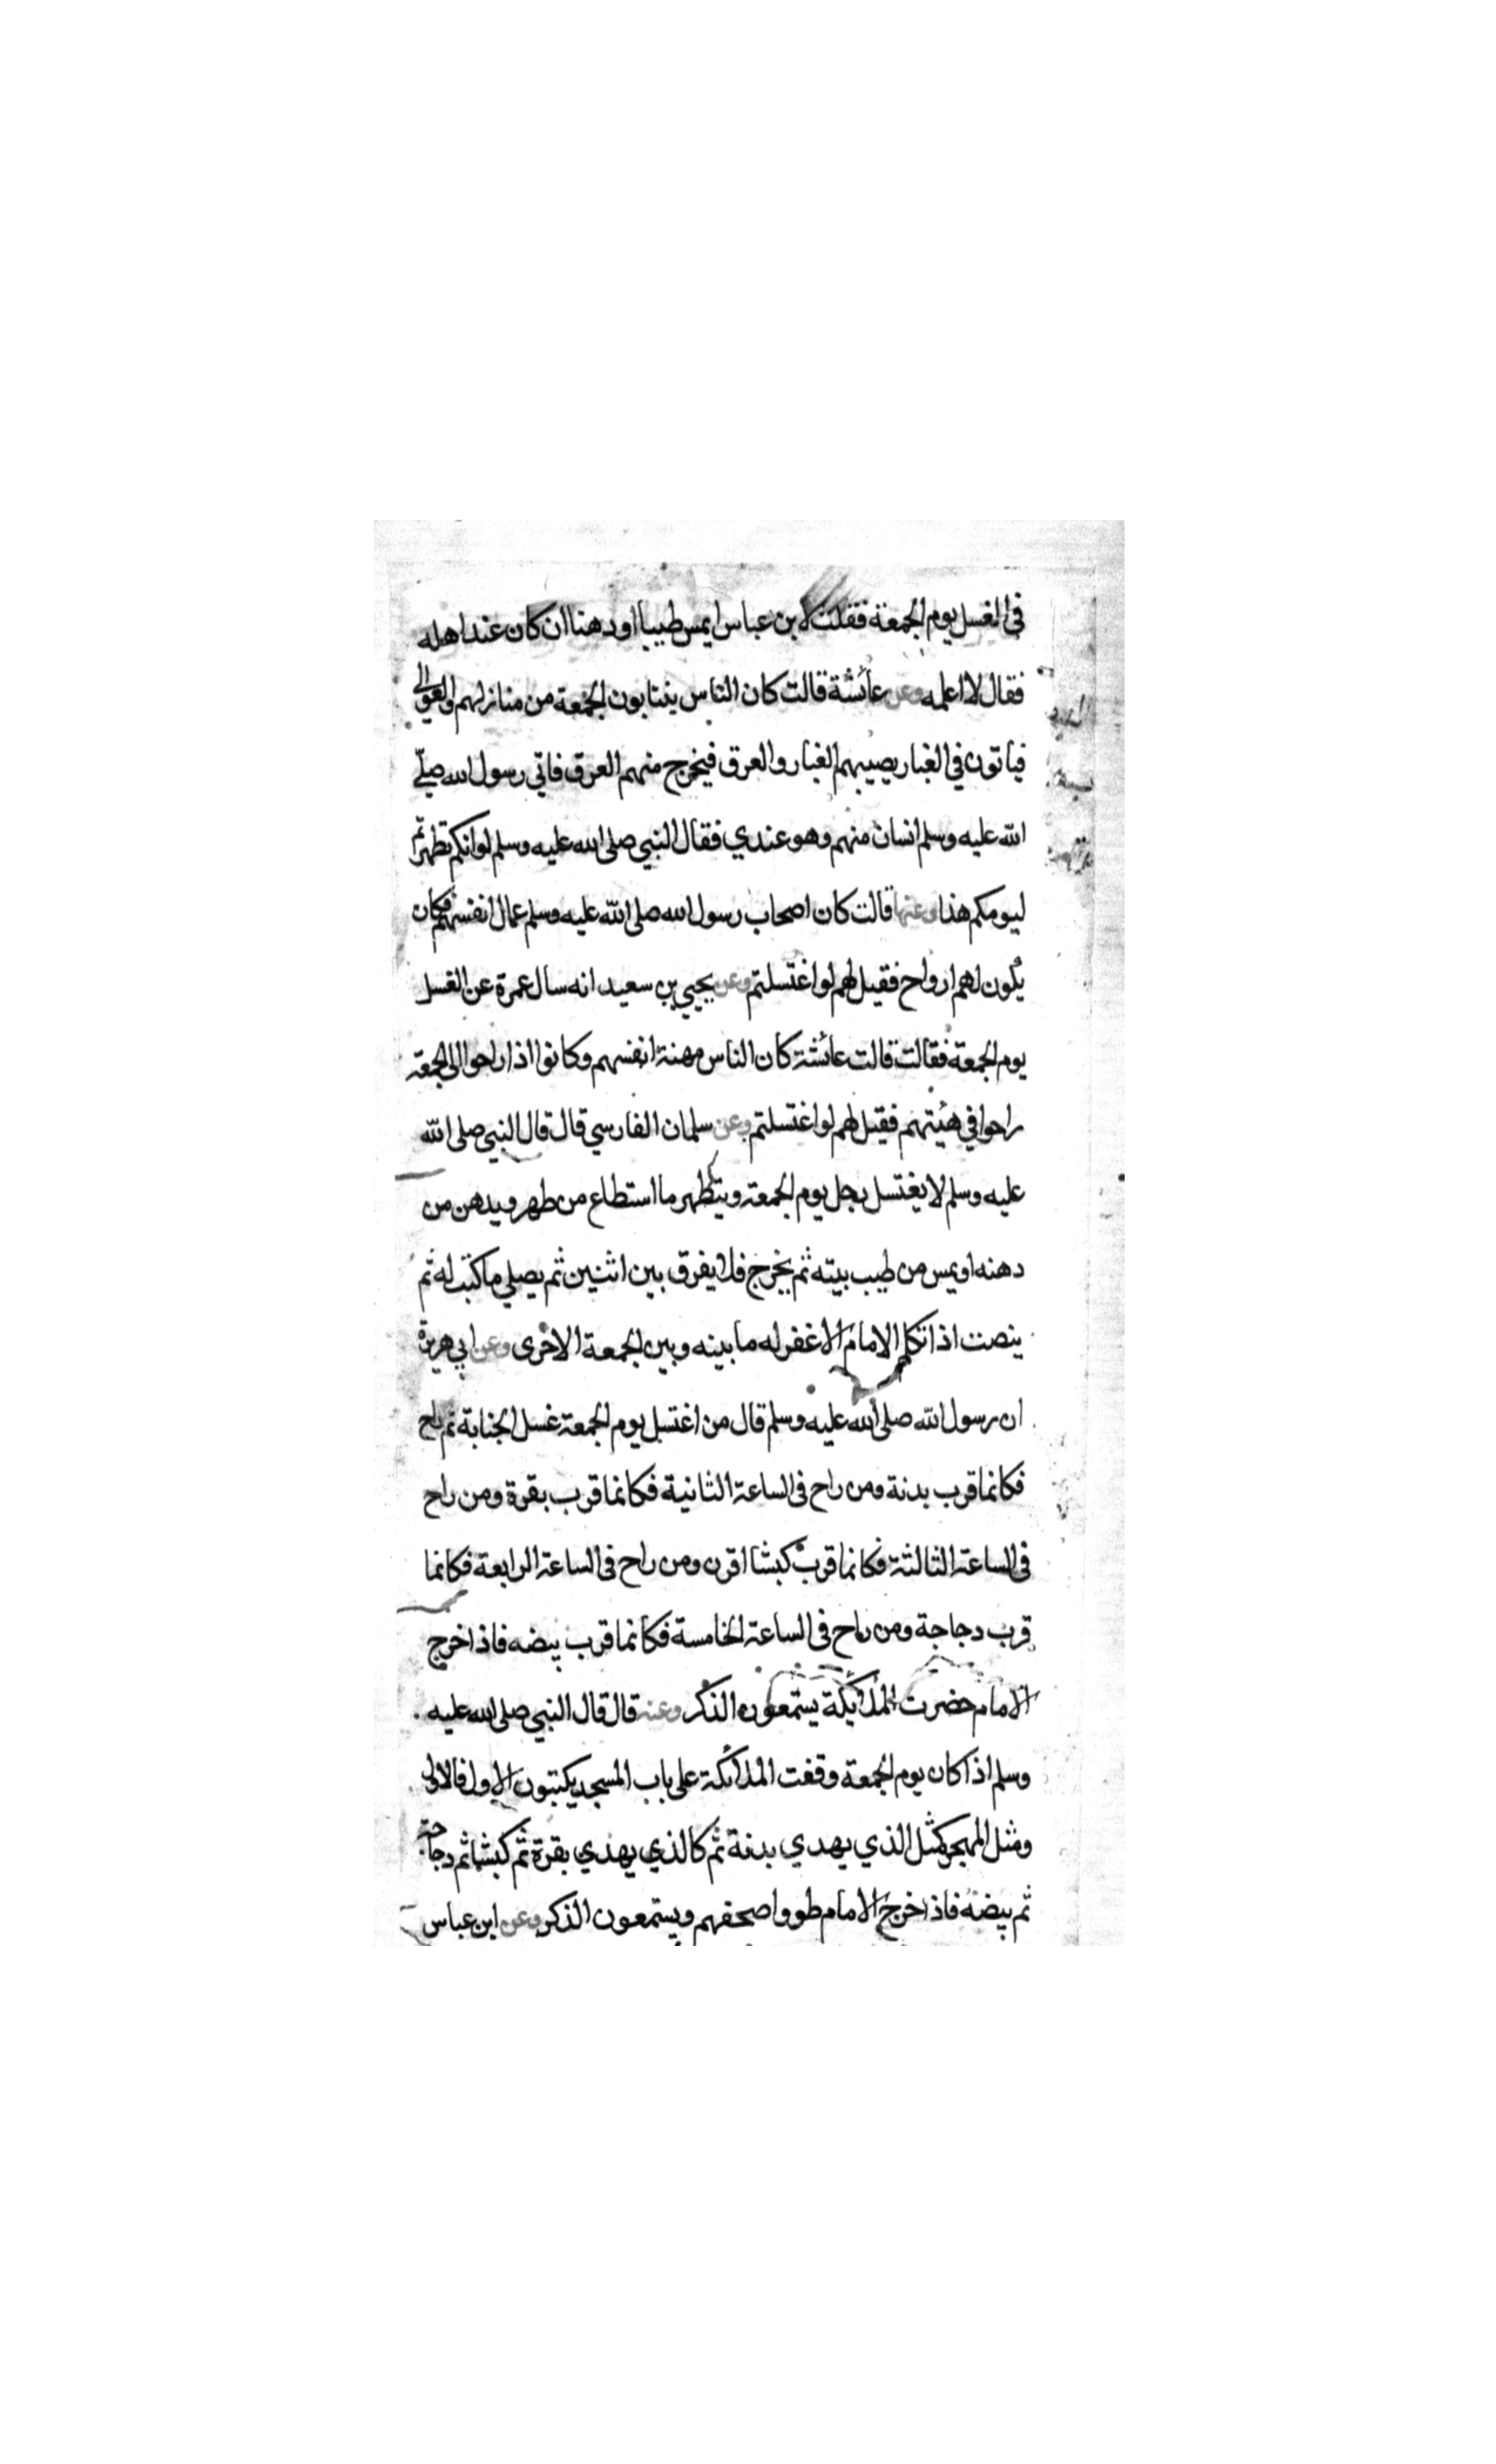 في الغسل يوم الجمعة فقلت لابن عباس ايمس طيبا او دهنا ان كان عند اهله
فقال لا اعلمه وعن عائشة قالت كان الناس ينتابون الجمعة من منازلهم والعوالي
فياتون في الغبار يصيبهم الغبار والعرق فيخرج منهم العرق فاتي رسول الله صلى
الله عليه وسلم انسان منهم وهو عندي فقال النبي صلى الله عليه وسلم لو انكم تطهرتم
ليومكم هذا وعنها قالت كان اصحاب رسول الله صلى الله عليه وسلم عمال انفسهم فكان
يكون لهم ارواح فقيل لهم لو اغتسلتم وعن يحيي بن سعيد انه سال عمرة عن الغسل
يوم الجمعة فقالت قالت عائشة كان الناس مهنة انفسهم وكانوا اذا راحوا الى الجمعة
راحوا في هيئتهم فقيل لهم لو اغتسلتم وعن سلمان الفارسي قال قال النبي صلى الله
عليه وسلم لا يغتسل رجل يوم الجمعة ويتطهر ما استطاع من طهر ويدهن من
دهنه او يمس من طيب بيته ثم يخرج فلا يفرق بين اثنين ثم يصلي ما كتب له ثم
ينصت اذا تكلم الامام الا غفر له ما بينه وبين الجمعة الاخرى وعن ابي هريرة
ان رسول الله صلى الله عليه وسلم قال من اغتسل يوم الجمعة غسل الجنابة ثم راح
فكانما قرب بدنة ومن راح في الساعة الثانية فكانما قرب بقرة ومن راح
في الساعة الثالثة فكانما قرب كبشا اقرن ومن راح في الساعة الرابعة فكانما
قرب دجاجة ومن راح في الساعة الخامسة فكانما قرب بيضه فاذا خرج
الامام حضرت الملائكة يستمعون الذكر وعنه قال قال النبي صلى الله عليه
وسلم اذا كان يوم الجمعة وقفت الملائكة على باب المسجد يكتبون الاول فالاول
ومثل المهجر كمثل الذي يهدي بدنة ثم كالذي يهدي بقرة ثم كبشا ثم دجاجة
ثم بيضه فاذا خرج الامام طووا صحفهم ويستمعون الذكر وعن ابن عباس